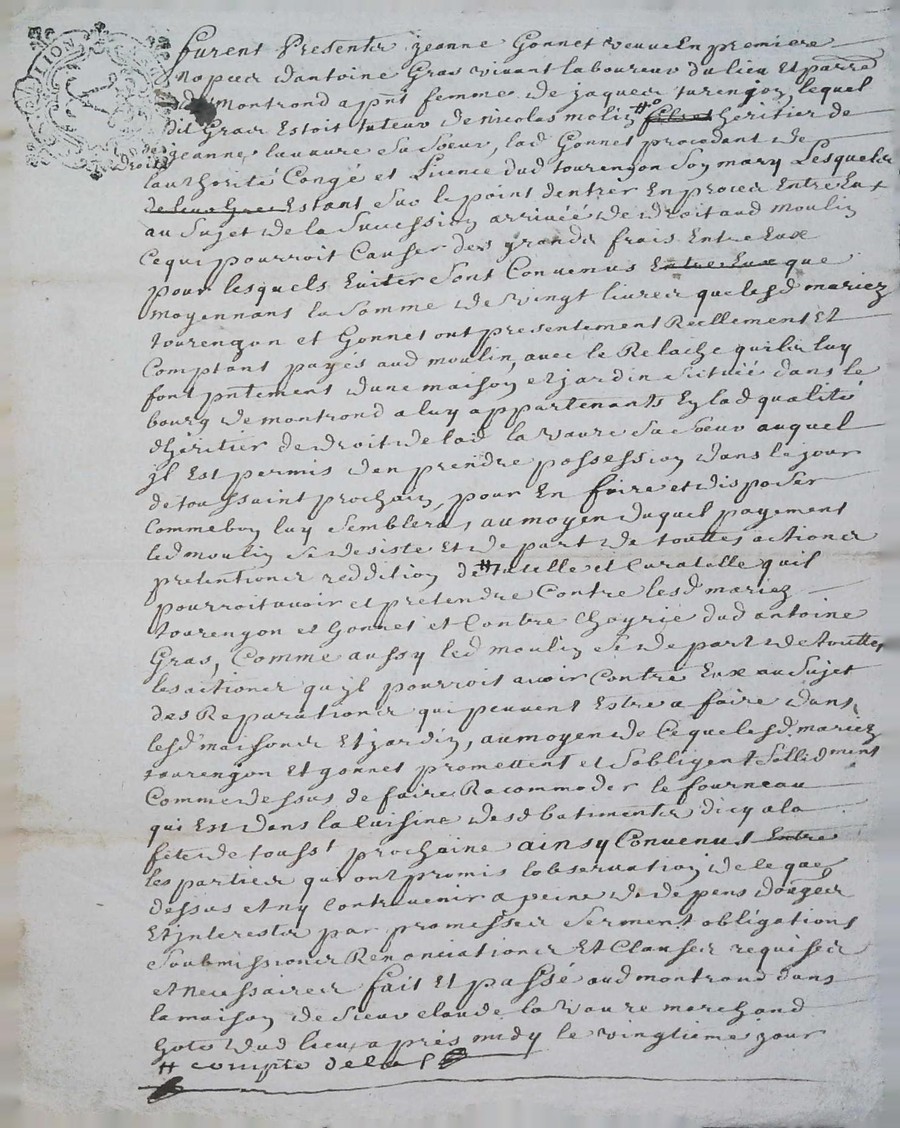 furent Presents jeanne Gonnet veuve En premiere
nopces dantoine Gras vivant laboureur du lieu Et parre
de montrond a pnt femme de jaques turengon lequel
dit Gras Estoit tuteur de nicolas molin heritier de
jeanne lavaure sa soeur, lad Gonnet procedant de
lauthorité Congé et Licence dud tourengon son mary Lesquels
de leur Gre Estant sur le point dentrer En proces Entre Eux
au sujet de la succession arrivée de droit aud moulin
ce qui pourroit Causer des grands frais Entre Eux
pour lesquels Eviter sont Convenus Entre Eux que
moyennant la somme de vingt livres que lesd mariez
tourengon et Gonnet ont presentement Reellement Et
Comptant payés aud moulin, avec le Relache quils luy
font pntement dune maison et jardin située dans le
bourg de montrond a luy appartenants En lad qualité
dheritier de droit de lad la vaure sa soeur auquel
jl Est permis den prendre possession dans le jour
de toussaint prochain, pour En faire et disposer
Comme bon luy semblera, au moyen duquel payement
led moulin se desiste Et de part de touttes actions
pretentions reddition de # tutelle et Curatelle quil
pourroit avoir et pretendre Contre lesd mariez
tourengon et Gonnet et Contre dud antoine
Gras, Comme aussy led moulin se depart de touttes
les actions qujl pourroit avoir Contre Eux au sujet
des Reparations qui peuvent Estre a faire dans
lesd maisons Et jardin, au moyen de Ce que lesd. mariez
tourengon Et gonnet promettent et sobligent sollidment
Comme dessus de faire Racommoder le fourneau
qui Est dans la Cuisine desd batiments dicy a la
fete de touss.t prochaine ainsy Convenu Entre
les parties qui ont promis lobservation de ce que
dessus et ny contrevenir a peine de depens
Et interests par promesses serment obligations
soubmissions Renonciations Et Clauses requises
et necessaires fait Et passé aud montrond dans
la maison de sieur claude la vaure marchand
hote dud lieu apres midy le vingtieme jour
# compte de la